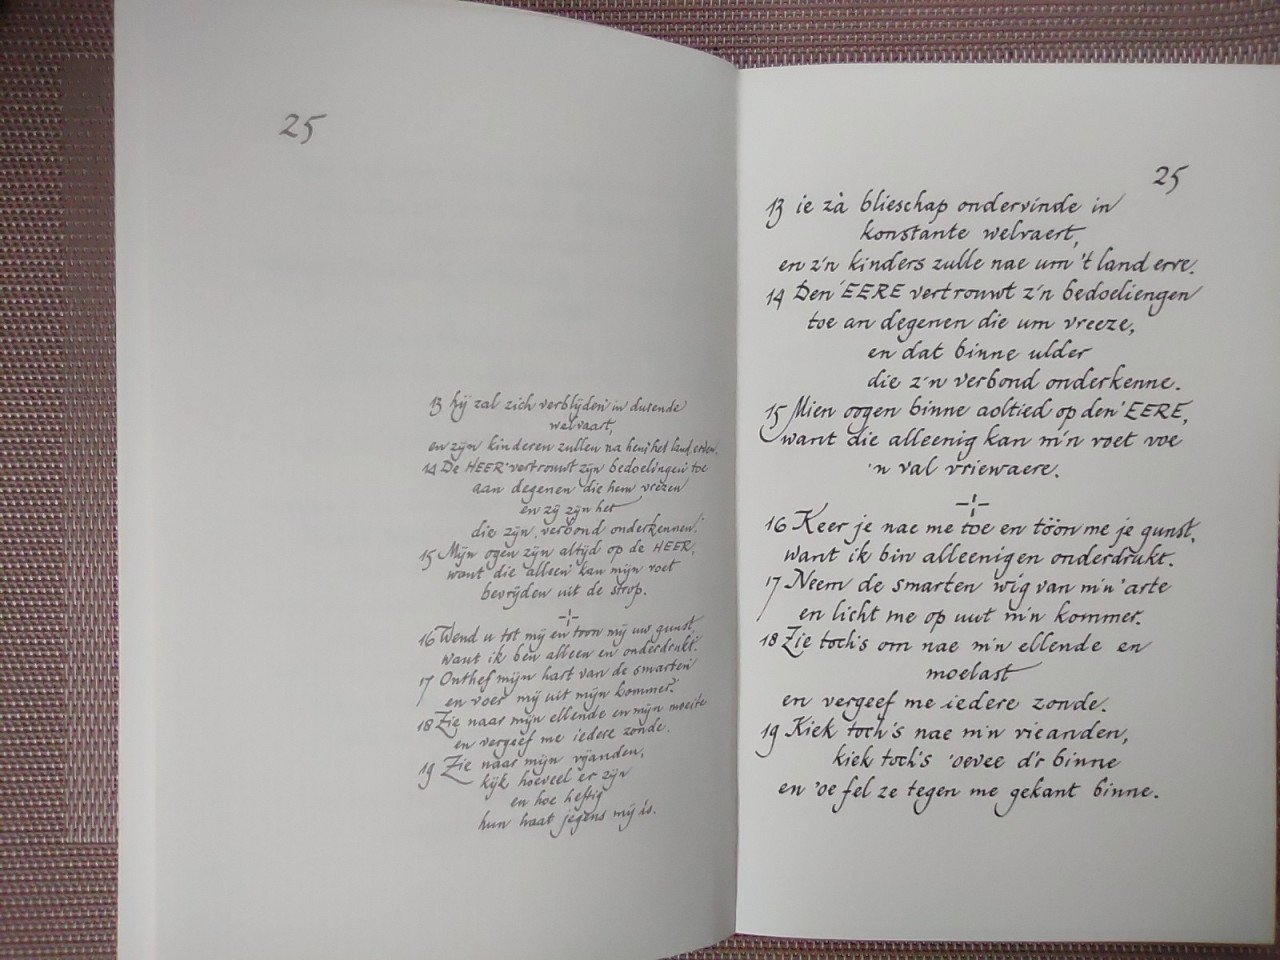 25
13 hij zal zich verblijden in durende
welvaart,
en zijn kinderen zullen na hem het land erven.
14 De HEER vertrouwt zijn bedoelingen toe
aan degenen die hem vrezen
en zij zijn het
die zijn verbond onderkennen.
15 Mijn ogen zijn altijd op de HEER,
want die alleen kan mijn voet
bevrijden uit de strop.
16 Wend u tot mij en toon mij uw gunst,
want ik ben alleen en onderdrukt.
17 Onthef mijn hart van de smarten
en voer mij uit mijn kommer.
18 Zie naar mijn ellende en mijn moeite
en vergeef me iedere zonde.
19 Zie naar mijn vijanden,
kijk hoeveel er zijn
en hoe heftig
hun haat jegens mij is.
25
13 ie zà blieschap ondervinde in
konstante welvaert,
en z'n kinders zulle nae um 't land erve.
14 Den 'EERE vertrouwt z'n bedoeliengen
toe an degenen die um vreeze,
en dat binne ulder
die z'n verbond onderkenne.
15 Mien oogen binne aoltied op den 'EERE,
want die alleenig kan m'n voet voe
'n val vriewaere.
16 Keer je nae me toe en tôôn me je gunst,
want ik bin alleenigen onderdrukt.
17 Neem de smarten wig van m'n 'arte
en licht me op uut m'n kommer.
18 Zie toch's om nae m'n ellende en
moelast
en vergeef me iedere zonde.
19 Kiek toch's nae m'n vieanden,
kiek toch's 'oevee d'r binne
en 'oe fel ze tegen me gekant binne.